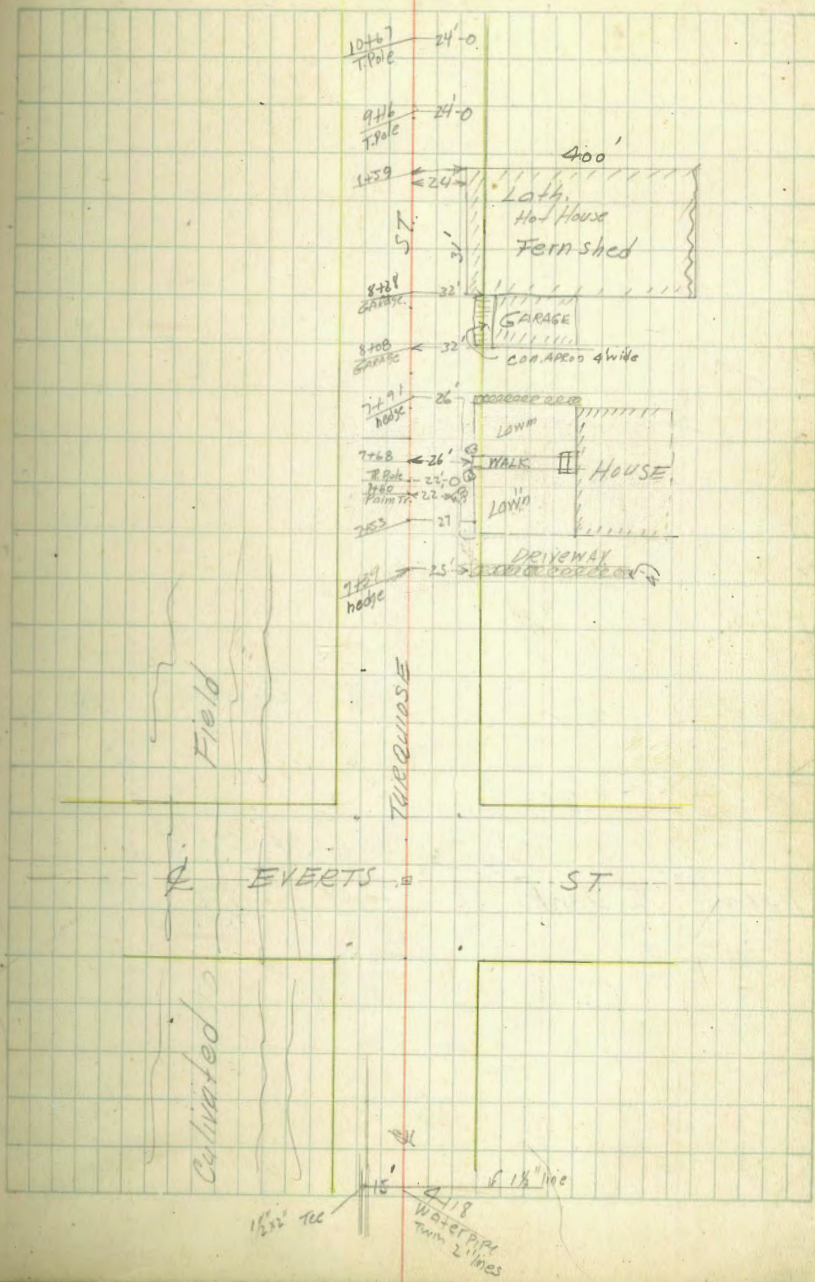 10+67 24'-0
T.Pole
9+16 24'-0
T.Pole
400'
1+59 24'
Lath.
Hot House
Fern shed
ST.
31'
8+28 32'
GARAGE
GARAGE
8+08 32'
GARAGE
con. APRON 4' wide
7+91 26'
hedge
Lawn
7+68 26' WALK
HOUSE
T.Pole 22'-0
7+60 22
Palm Tr.
Lawn
7+53 27
DRIVEWAY
25'
hedge
4'
Field
TURQUIOSE
℄ EVERTS ST.
Cultivated
℄
15'
1½" line
1½"x2" Tee
4+18
Waterpipe
Twin 2" lines